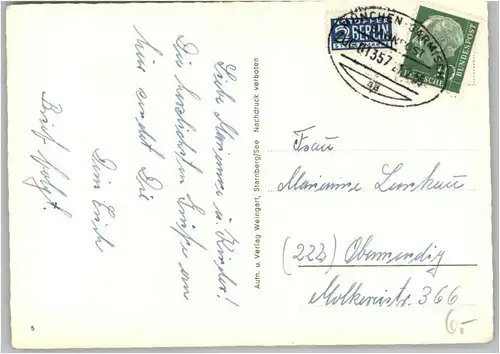 Liebe Marianne u. Kinder!
Die herzlichsten Grüße von
hier sendet Dir
Dein Erich
Brief folgt
5
Aufn. u. Verlag Weingart, Starnberg/See Nachdruck verboten
NOTOPFER
2 BERLIN
STEUERMARKE
MÜNCHEN-GARMISCH
BAHNPOST
DEUTSCHE BUNDESPOST
Frau
Marianne
(22b) Obermendig
Molkereistr. 366
6.-